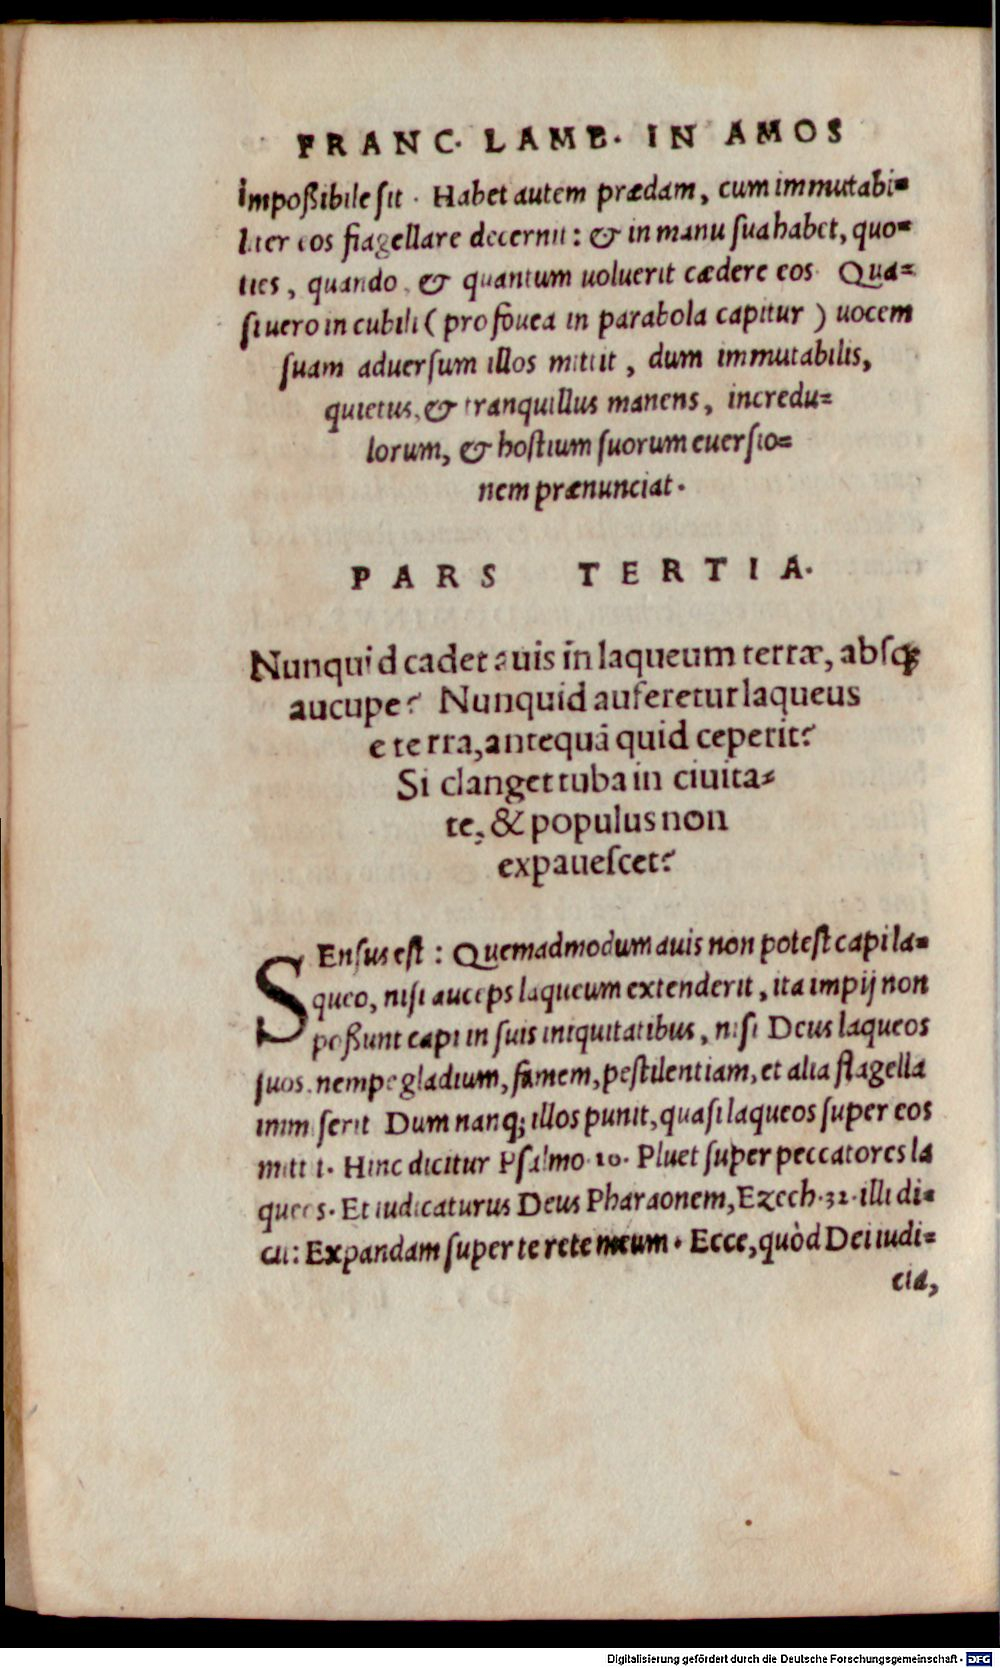 FRANC. LAMB. IN AMOS
impoßibile ſit. Habet autem prædam, cum immutabi=
liter eos flagellare decernit: & in manu ſua habet, quo=
ties, quando, & quantum uoluerit cædere eos. Qua=
ſi uero in cubili (pro fouea in parabola capitur) uocem
ſuam aduerſum illos mittit, dum immutabilis,
quietus, & tranquillus manens, incredu=
lorum, & hoſtium ſuorum euerſio=
nem prænunciat.
PARS TERTIA.
Nunquid cadet auis in laqueum terræ, absq;
aucupe? Nunquid auferetur laqueus
e terra, antequā quid ceperit?
Si clanget tuba in ciuita=
te, & populus non
expaueſcet?
SEnſus est: Quemadmodum auis non poteſt capi la=
queo, niſi auceps laqueum extenderit, ita impij non
poßunt capi in ſuis iniquitatibus, niſi Deus laqueos
ſuos, nempe gladium, famem, peſtilentiam, et alia flagella
immiſerit. Dum nanq; illos punit, quaſi laqueos ſuper eos
mittit. Hinc dicitur Pſalmo. 10. Pluet ſuper peccatores la
queos. Et iudicaturus Deus Pharaonem, Ezech. 32. illi di=
cit: Expandam ſuper te rete meum. Ecce, quòd Dei iudi=
cia,
Digitalisierung gefördert durch die Deutsche Forschungsgemeinschaft - DFG